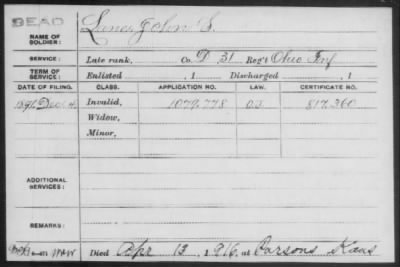 DEAD
NAME OF SOLDIER: Lane, John S.
SERVICE: Late rank, Co. D, 31 Reg't Ohio Inf
TERM OF SERVICE: Enlisted , 1 Discharged , 1
DATE OF FILING. CLASS. APPLICATION NO. LAW. CERTIFICATE NO.
Dec 4 Invalid, 1079.778 817.360
Widow,
Minor,
ADDITIONAL SERVICES:
REMARKS:
Died Apr 13, 1916, at Parsons Kans